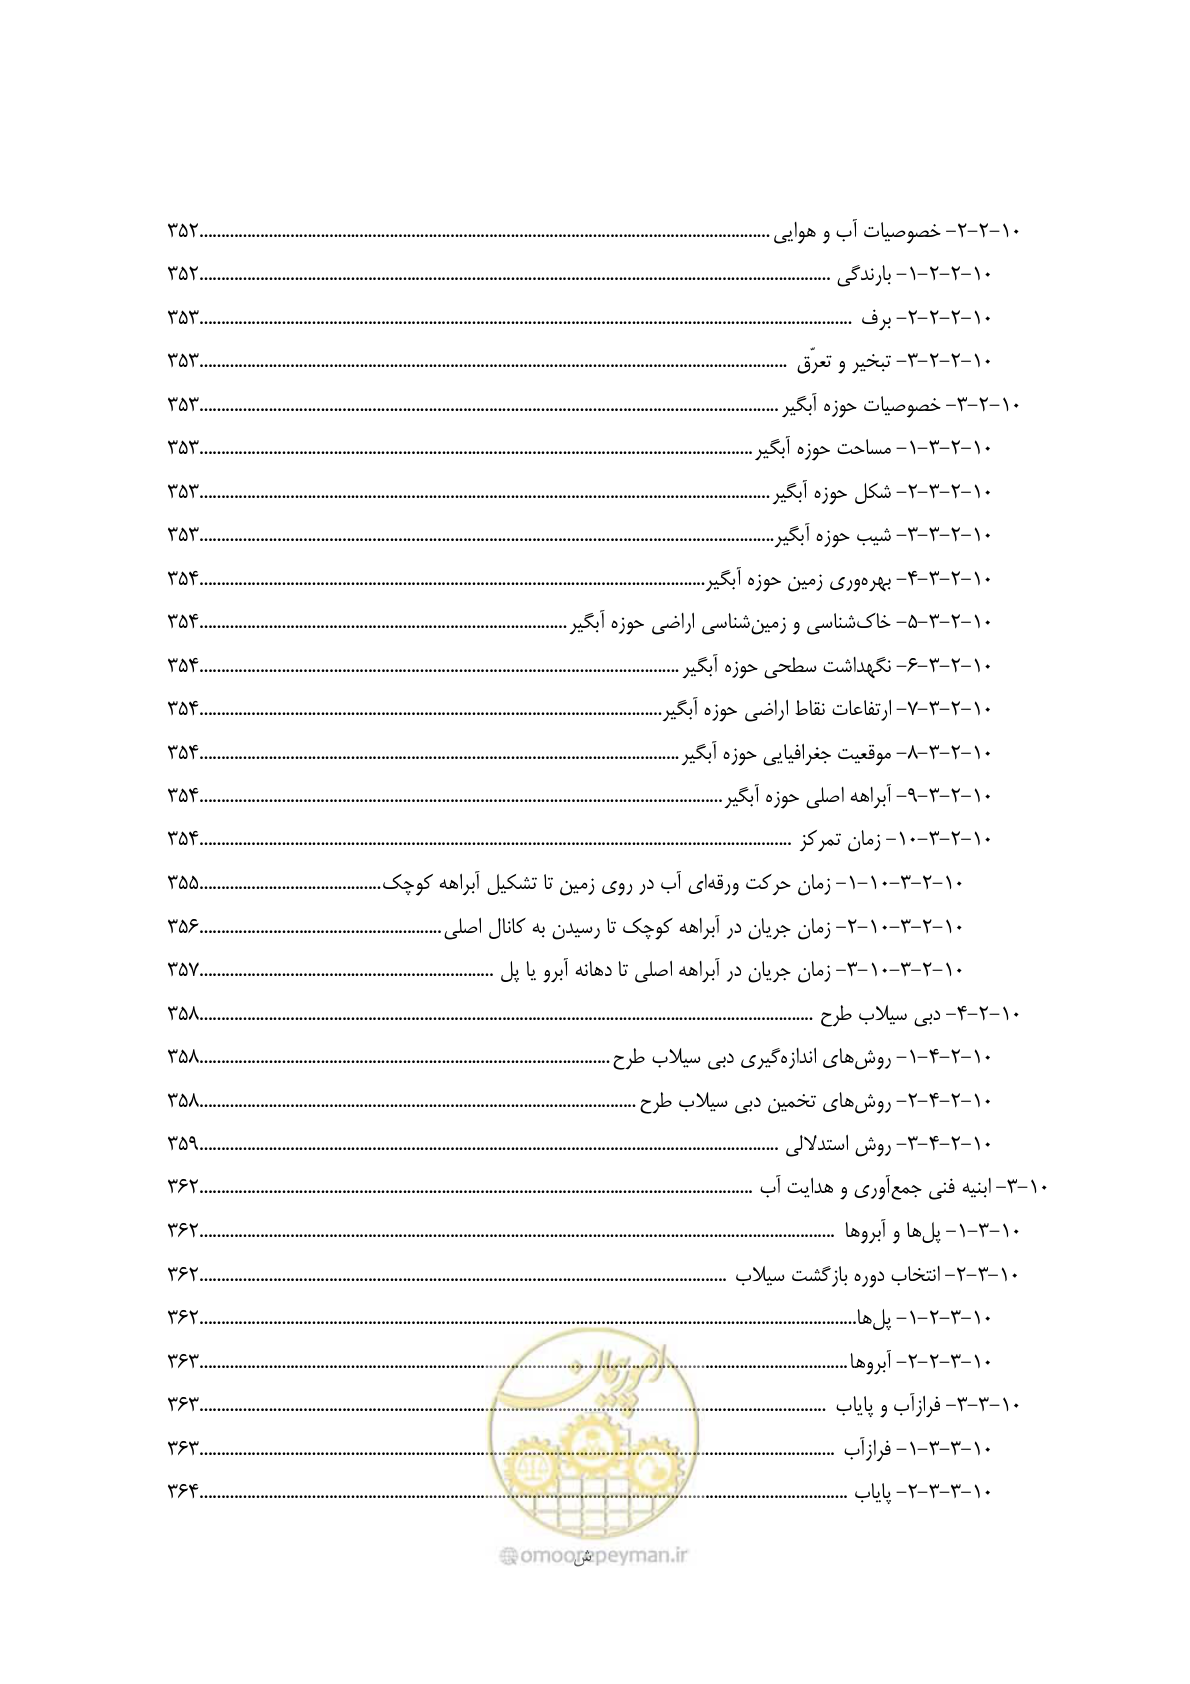 ۱۰-۲-۲- خصوصیات آب و هوایی ........ ۳۵۲
۱۰-۲-۲-۱- بارندگی ........ ۳۵۲
۱۰-۲-۲-۲- برف ........ ۳۵۳
۱۰-۲-۲-۳- تبخیر و تعرّق ........ ۳۵۳
۱۰-۲-۳- خصوصیات حوزه آبگیر ........ ۳۵۳
۱۰-۲-۳-۱- مساحت حوزه آبگیر ........ ۳۵۳
۱۰-۲-۳-۲- شکل حوزه آبگیر ........ ۳۵۳
۱۰-۲-۳-۳- شیب حوزه آبگیر ........ ۳۵۳
۱۰-۲-۳-۴- بهره‌وری زمین حوزه آبگیر ........ ۳۵۴
۱۰-۲-۳-۵- خاک‌شناسی و زمین‌شناسی اراضی حوزه آبگیر ........ ۳۵۴
۱۰-۲-۳-۶- نگهداشت سطحی حوزه آبگیر ........ ۳۵۴
۱۰-۲-۳-۷- ارتفاعات نقاط اراضی حوزه آبگیر ........ ۳۵۴
۱۰-۲-۳-۸- موقعیت جغرافیایی حوزه آبگیر ........ ۳۵۴
۱۰-۲-۳-۹- آبراهه اصلی حوزه آبگیر ........ ۳۵۴
۱۰-۲-۳-۱۰- زمان تمرکز ........ ۳۵۴
۱۰-۲-۳-۱۰-۱- زمان حرکت ورقه‌ای آب در روی زمین تا تشکیل آبراهه کوچک ........ ۳۵۵
۱۰-۲-۳-۱۰-۲- زمان جریان در آبراهه کوچک تا رسیدن به کانال اصلی ........ ۳۵۶
۱۰-۲-۳-۱۰-۳- زمان جریان در آبراهه اصلی تا دهانه آبرو یا پل ........ ۳۵۷
۱۰-۲-۴- دبی سیلاب طرح ........ ۳۵۸
۱۰-۲-۴-۱- روش‌های اندازه‌گیری دبی سیلاب طرح ........ ۳۵۸
۱۰-۲-۴-۲- روش‌های تخمین دبی سیلاب طرح ........ ۳۵۸
۱۰-۲-۴-۳- روش استدلالی ........ ۳۵۹
۱۰-۳- ابنیه فنی جمع‌آوری و هدایت آب ........ ۳۶۲
۱۰-۳-۱- پل‌ها و آبروها ........ ۳۶۲
۱۰-۳-۲- انتخاب دوره بازگشت سیلاب ........ ۳۶۲
۱۰-۳-۲-۱- پل‌ها ........ ۳۶۲
۱۰-۳-۲-۲- آبروها ........ ۳۶۳
۱۰-۳-۳- فرازآب و پایاب ........ ۳۶۳
۱۰-۳-۳-۱- فرازآب ........ ۳۶۳
۱۰-۳-۳-۲- پایاب ........ ۳۶۴
امور پیمان
ش
@omoorepeyman.ir